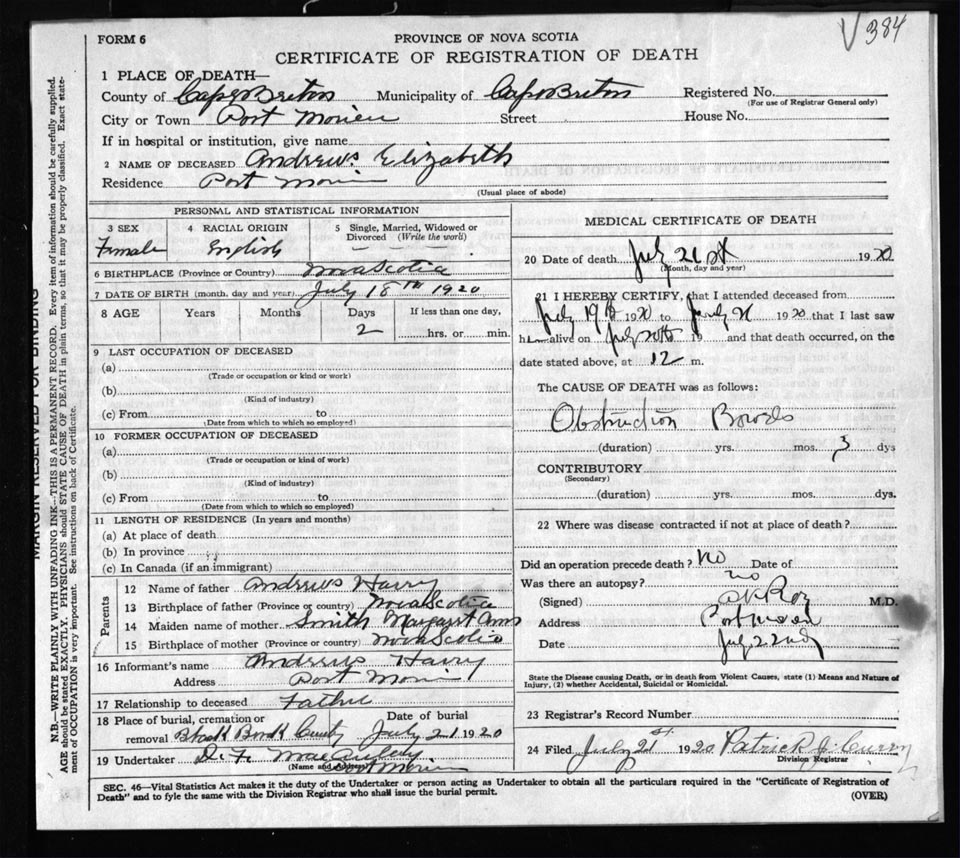 V 384
FORM 6
PROVINCE OF NOVA SCOTIA
CERTIFICATE OF REGISTRATION OF DEATH
1 PLACE OF DEATH—
County of Cape Breton Municipality of Cape Breton Registered No.
(For use of Registrar General only)
City or Town Port Morien Street House No.
If in hospital or institution, give name
2 NAME OF DECEASED Andrews Elizabeth
Residence Port Morien
(Usual place of abode)
PERSONAL AND STATISTICAL INFORMATION
3 SEX 4 RACIAL ORIGIN 5 Single, Married, Widowed or
Divorced (Write the word)
Female English —
6 BIRTHPLACE (Province or Country) Nova Scotia
7 DATE OF BIRTH (month, day and year) July 18th 1920
8 AGE Years Months Days If less than one day,
2 hrs. or min.
9 LAST OCCUPATION OF DECEASED
(a)
(Trade or occupation or kind or work)
(b)
(Kind of industry)
(c) From to
(Date from which to which so employed)
10 FORMER OCCUPATION OF DECEASED
(a)
(Trade or occupation or kind of work)
(b)
(Kind of industry)
(c) From to
(Date from which to which so employed)
11 LENGTH OF RESIDENCE (In years and months)
(a) At place of death
(b) In province
(c) In Canada (if an immigrant)
Parents
12 Name of father Andrews Harry
13 Birthplace of father (Province or country) Nova Scotia
14 Maiden name of mother Smith Margaret Ann
15 Birthplace of mother (Province or country) Nova Scotia
16 Informant's name Andrews Harry
Address Port Morien
17 Relationship to deceased Father
18 Place of burial, cremation or Date of burial
removal Black Brook July 21 1920
19 Undertaker D. F.
(Name and Address) Port Morien
MEDICAL CERTIFICATE OF DEATH
20 Date of death July 21st 1920
(Month, day and year)
21 I HEREBY CERTIFY, that I attended deceased from
July 19th 1920 to 1920 that I last saw
h alive on July 20th 19 and that death occurred, on the
date stated above, at 12 m.
The CAUSE OF DEATH was as follows:
Obstruction Bowels
(duration) yrs. mos. 3 dys
CONTRIBUTORY
(Secondary)
(duration) yrs. mos. dys.
22 Where was disease contracted if not at place of death?
Did an operation precede death? No Date of
Was there an autopsy? no
(Signed) M.D.
Address Port Morien
Date July 22nd
State the Disease causing Death, or in death from Violent Causes, state (1) Means and Nature of
Injury, (2) whether Accidental, Suicidal or Homicidal.
23 Registrar's Record Number
24 Filed July 1920 Patrick J. Curry
Division Registrar
SEC. 46—Vital Statistics Act makes it the duty of the Undertaker or person acting as Undertaker to obtain all the particulars required in the "Certificate of Registration of
Death" and to fyle the same with the Division Registrar who shall issue the burial permit.
(OVER)
MARGIN RESERVED FOR BINDING
N.B.—WRITE PLAINLY WITH UNFADING INK—THIS IS A PERMANENT RECORD. Every item of information should be carefully supplied.
AGE should be stated EXACTLY. PHYSICIANS should STATE CAUSE OF DEATH in plain terms, so that it may be properly classified. Exact state-
ment of OCCUPATION is very important. See instructions on back of Certificate.